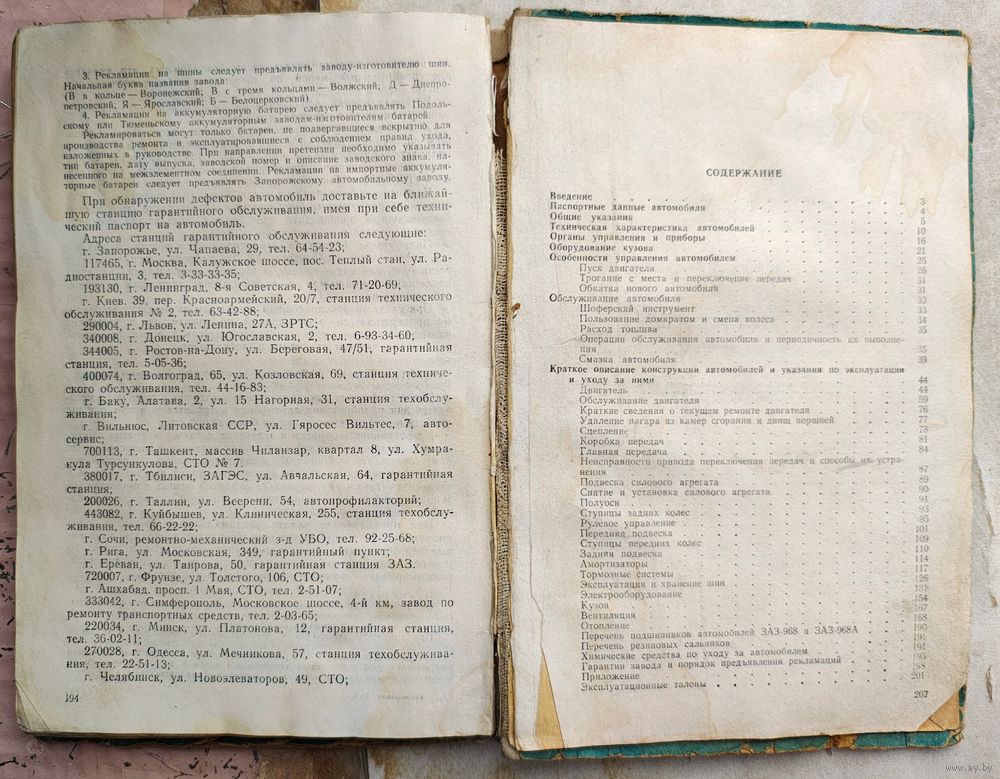 3. Рекламации на шины следует предъявлять заводу-изготовителю шин.
Начальная буква названия завода:
(В в кольце — Воронежский; В с тремя кольцами — Волжский; Д — Днепро-
петровский; Я — Ярославский; Б — Белоцерковский)
4. Рекламации на аккумуляторную батарею следует предъявлять Подоль-
скому или Тюменскому аккумуляторным заводам-изготовителям батарей.
Рекламироваться могут только батареи, не подвергавшиеся вскрытию для
производства ремонта и эксплуатировавшиеся с соблюдением правил ухода,
изложенных в руководстве. При направлении претензии необходимо указывать
тип батареи, дату выпуска, заводской номер и описание заводского знака, на-
несенного на межэлементном соединении. Рекламации на импортные аккумуля-
торные батареи следует предъявлять Запорожскому автомобильному заводу.
При обнаружении дефектов автомобиль доставьте на ближай-
шую станцию гарантийного обслуживания, имея при себе техни-
ческий паспорт на автомобиль.
Адреса станций гарантийного обслуживания следующие:
г. Запорожье, ул. Чапаева, 29, тел. 64-54-23;
117465, г. Москва, Калужское шоссе, пос. Теплый стан, ул. Ра-
диостанции, 3, тел. 3-33-33-35;
193130, г. Ленинград, 8-я Советская, 4, тел 71-20-69;
г. Киев. 39, пер. Красноармейский, 20/7, станция технического
обслуживания № 2, тел. 63-42-88;
290004, г. Львов, ул. Ленина, 27А, ЗРТС;
340008, г. Донецк, ул. Югославская, 2, тел. 6-93-34-60;
344005, г. Ростов-на-Дону, ул. Береговая, 47/51, гарантийная
станция, тел. 5-05-36;
400074, г. Волгоград, 65, ул. Козловская, 69, станция техниче-
ского обслуживания, тел. 44-16-83;
г. Баку, Алатава, 2, ул. 15 Нагорная, 31, станция техобслу-
живания;
г. Вильнюс, Литовская ССР, ул. Гяросес Вильтес, 7, авто-
сервис;
700113, г. Ташкент, массив Чиланзар, квартал 8, ул. Хумра-
кула Турсункулова, СТО № 7.
380017, г. Тбилиси, ЗАГЭС, ул. Авчальская, 64, гарантийная
станция;
200026, г. Таллин, ул. Веерени, 54, автопрофилакторий;
443082, г. Куйбышев, ул. Клиническая, 255, станция техобслу-
живания, тел. 66-22-22;
г. Сочи, ремонтно-механический з-д УБО, тел. 92-25-68;
г. Рига, ул. Московская, 349, гарантийный пункт;
г. Ереван, ул. Таирова, 50, гарантийная станция ЗАЗ.
720007, г. Фрунзе, ул. Толстого, 106, СТО;
г. Ашхабад. просп. 1 Мая, СТО, тел. 2-51-07;
333042, г. Симферополь, Московское шоссе, 4-й км, завод по
ремонту транспортных средств, тел. 2-03-65;
220034, г. Минск, ул. Платонова, 12, гарантийная станция,
тел. 36-02-11;
270028, г. Одесса, ул. Мечникова, 57, станция техобслужива-
ния, тел. 22-51-13;
г. Челябинск, ул. Новоэлеваторов, 49, СТО;
194
СОДЕРЖАНИЕ
Введение 3
Паспортные данные автомобиля 4
Общие указания 5
Техническая характеристика автомобилей 10
Органы управления и приборы 16
Оборудование кузова 21
Особенности управления автомобилем 25
Пуск двигателя 26
Трогание с места и переключение передач 31
Обкатка нового автомобиля 31
Обслуживание автомобиля 33
Шоферский инструмент 33
Пользование домкратом и смена колеса 34
Расход топлива 35
Операции обслуживания автомобиля и периодичность их выполне-
ния 35
Смазка автомобиля 39
Краткое описание конструкции автомобилей и указания по эксплуатации
и уходу за ними 44
Двигатель 44
Обслуживание двигателя 59
Краткие сведения о текущем ремонте двигателя 76
Удаление нагара из камер сгорания и днищ поршней 77
Сцепление 78
Коробка передач 81
Главная передача 84
Неисправности привода переключения передач и способы их устра-
нения 87
Подвеска силового агрегата 89
Снятие и установка силового агрегата 90
Полуоси 91
Ступицы задних колес 93
Рулевое управление 95
Передняя подвеска 101
Ступицы передних колес 109
Задняя подвеска 110
Амортизаторы 114
Тормозные системы 117
Эксплуатация и хранение шин 126
Электрооборудование 131
Кузов 154
Вентиляция 167
Отопление 168
Перечень подшипников автомобилей ЗАЗ-968 и ЗАЗ-968А 190
Перечень резиновых сальников 191
Химические средства по уходу за автомобилем 193
Гарантии завода и порядок предъявления рекламаций 198
Приложение 201
Эксплуатационные талоны
207
www.ay.by